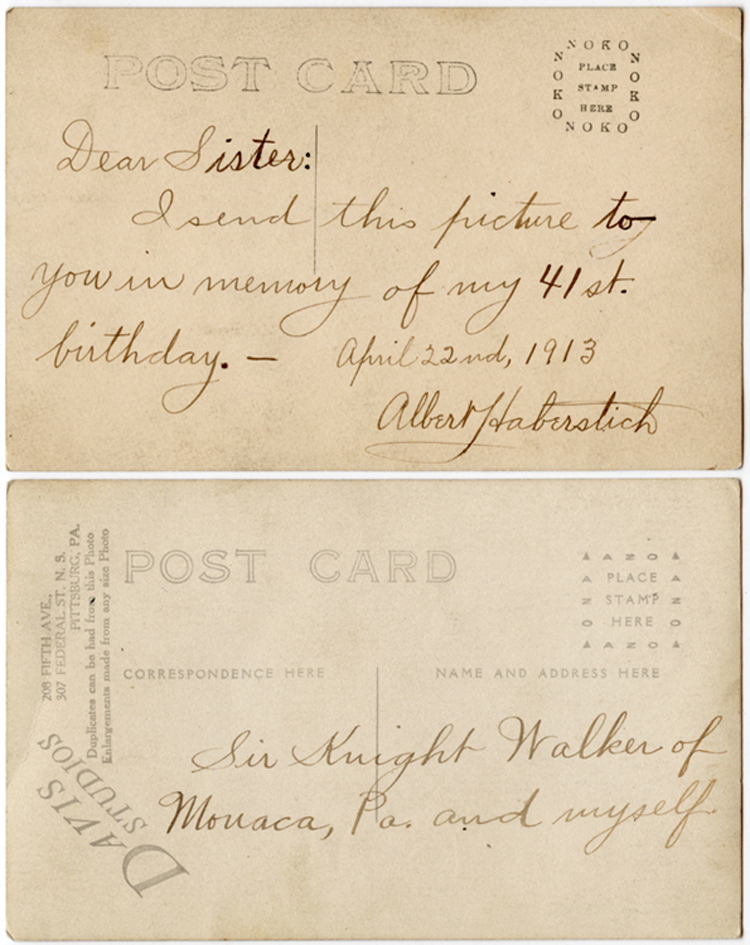 POST CARD
NOKO
NOKO
PLACE
STAMP
HERE
NOKO
NOKO
Dear Sister:
I send this picture to
you in memory of my 41st.
birthday. — April 22nd, 1913
Albert Haberstich
208 FIFTH AVE.,
307 FEDERAL ST. N. S.
PITTSBURG, PA.
Duplicates can be had from this Photo
Enlargements made from any size Photo
DAVIS
STUDIOS
POST CARD
AZO
AZO
PLACE
STAMP
HERE
AZO
AZO
CORRESPONDENCE HERE
NAME AND ADDRESS HERE
Sir Knight Walker of
Monaca, Pa. and myself.